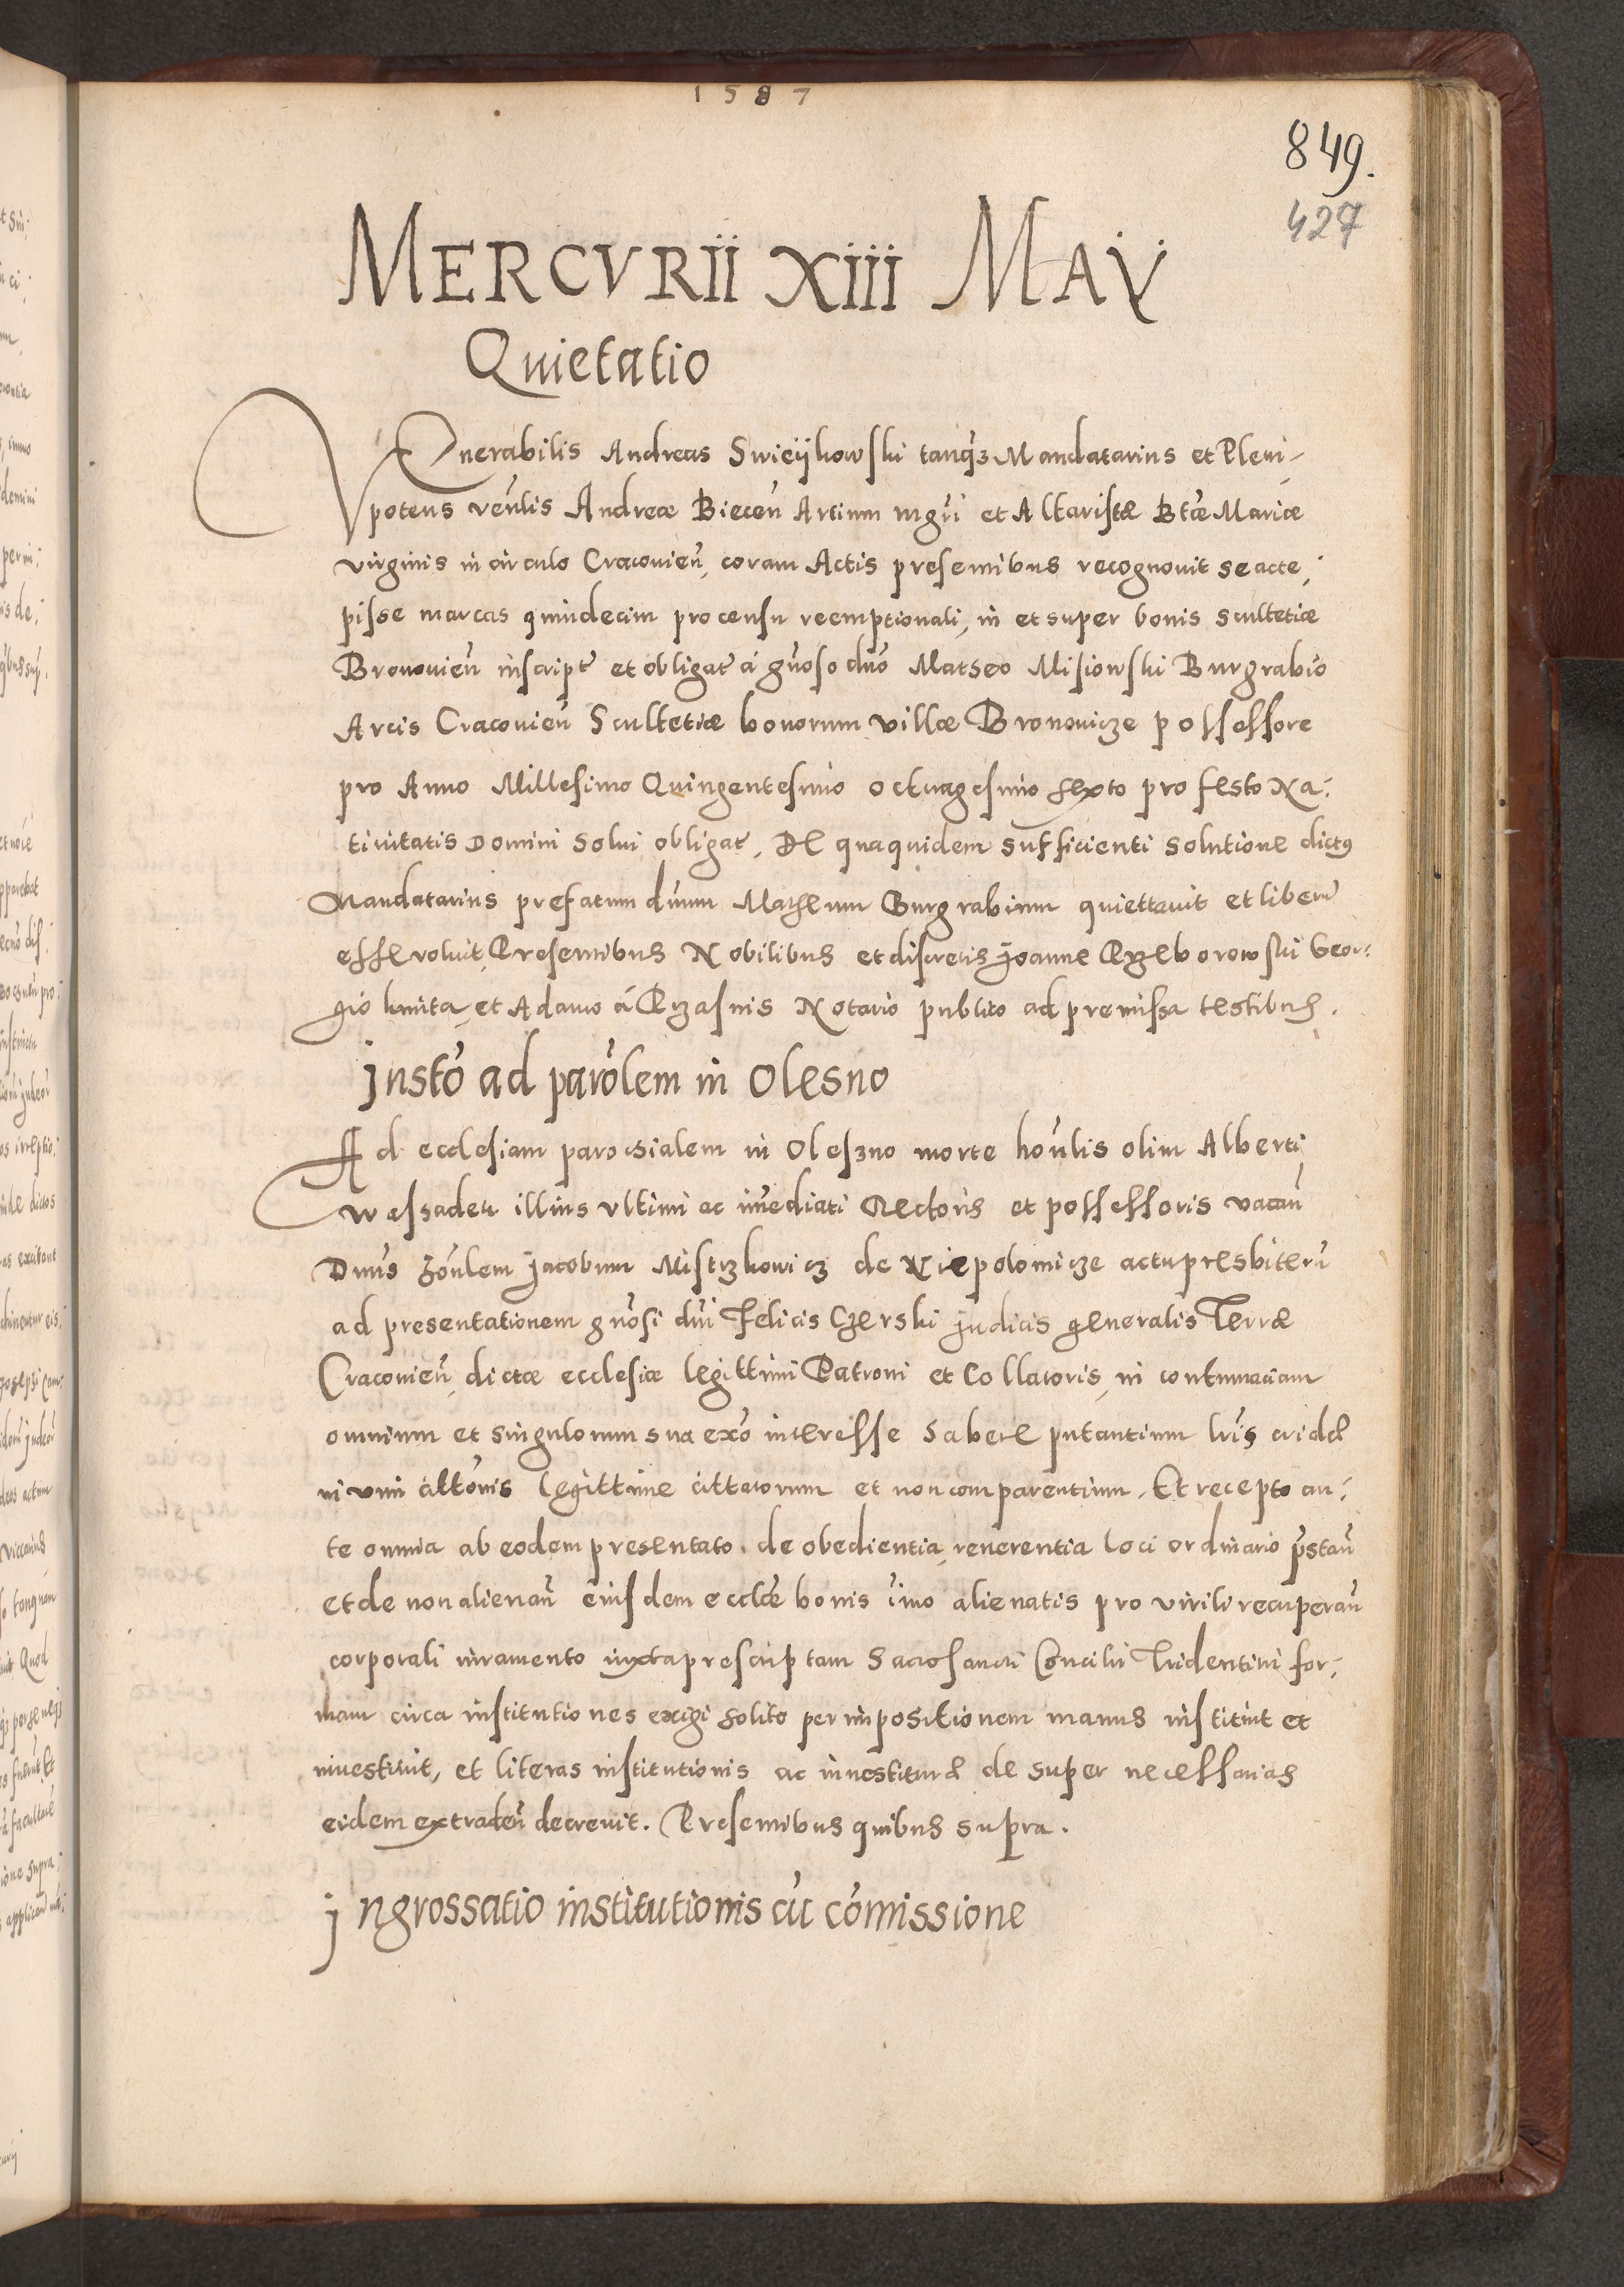 1587
849.
427
MERCVRII XIII MAY
Quietatio
VEnerabilis Andreas Swieijkowski tanq̃ȝ Mandatarius et Pleni,
potens venlis̃ Andreæ Biecen̄ Artium mgr̄i et Altaristæ Btæ̃ Mariæ
virginis in circulo Cracouien̄, coram Actis presentibus recognouit se acce,
pisse marcas quindecim pro censu reemptionali, in et super bonis scultetiæ
Bronouien̄ inscript̃ et obligat̃ à gn̄oso dn̄o Matheo Misiowski Burgrabio
Arcis Cracouien̄ Scultetiæ bonorum villæ Bronouicze possessore
pro Anno Millesimo Quingentesimo octuagesimo sexto pro festo Na:
tiuitatis Domini solui obligat̃, De qua quidem sufficienti solutione dictꝰ
Mandatarius prefatum dn̄um Matheum Burgrabium quiettauit et liberũ
esse voluit, Presentibus Nobilibus et discretis Joanne Przeborowski Geor:
gio kmita, et Adamo à Przasnis Notario publico ad premissa testibus.
Insto᷉ ad paro᷉lem in Olesno
Ad ecclesiam parochialem in Oleszno morte hon̄lis olim Alberti
illius vltimi ac im̄ediati Rectoris et possessoris vacan̄
Dn̄us hon̄lem Jacobum Mistrzkowicz de Niepolomicze actu presbiterũ
ad presentationem gn̄osi dn̄i Felicis Czerski Judicis generalis Terræ
Cracouien̄, dictæ ecclesiæ legittimi Patroni et Collatoris, in contumaciam
omnium et singulorum sua exõ interesse habere putantium lr̄is cridæ
in vim cittõnis legittime cittatorum et non comparentium, Et recepto an:
te omnia ab eodem presentato, de obedientia, reuerentia loci ordinario p̄stan̄
et de non alienan̄ eiusdem ecclæ̃ bonis im̄o alienatis pro virili recuperan̄
corporali iuramento iuxta prescriptam Sacrosancti Concilii Tridentini for,
mam circa institutiones exigi solito per impositionem manus instituit et
inuestiuit, et literas institutionis ac inuestituræ de super necessarias
eidem extraden̄ decreuit. Presentibus quibus supra.
Ingrossatio institutionis cũ cõmissione